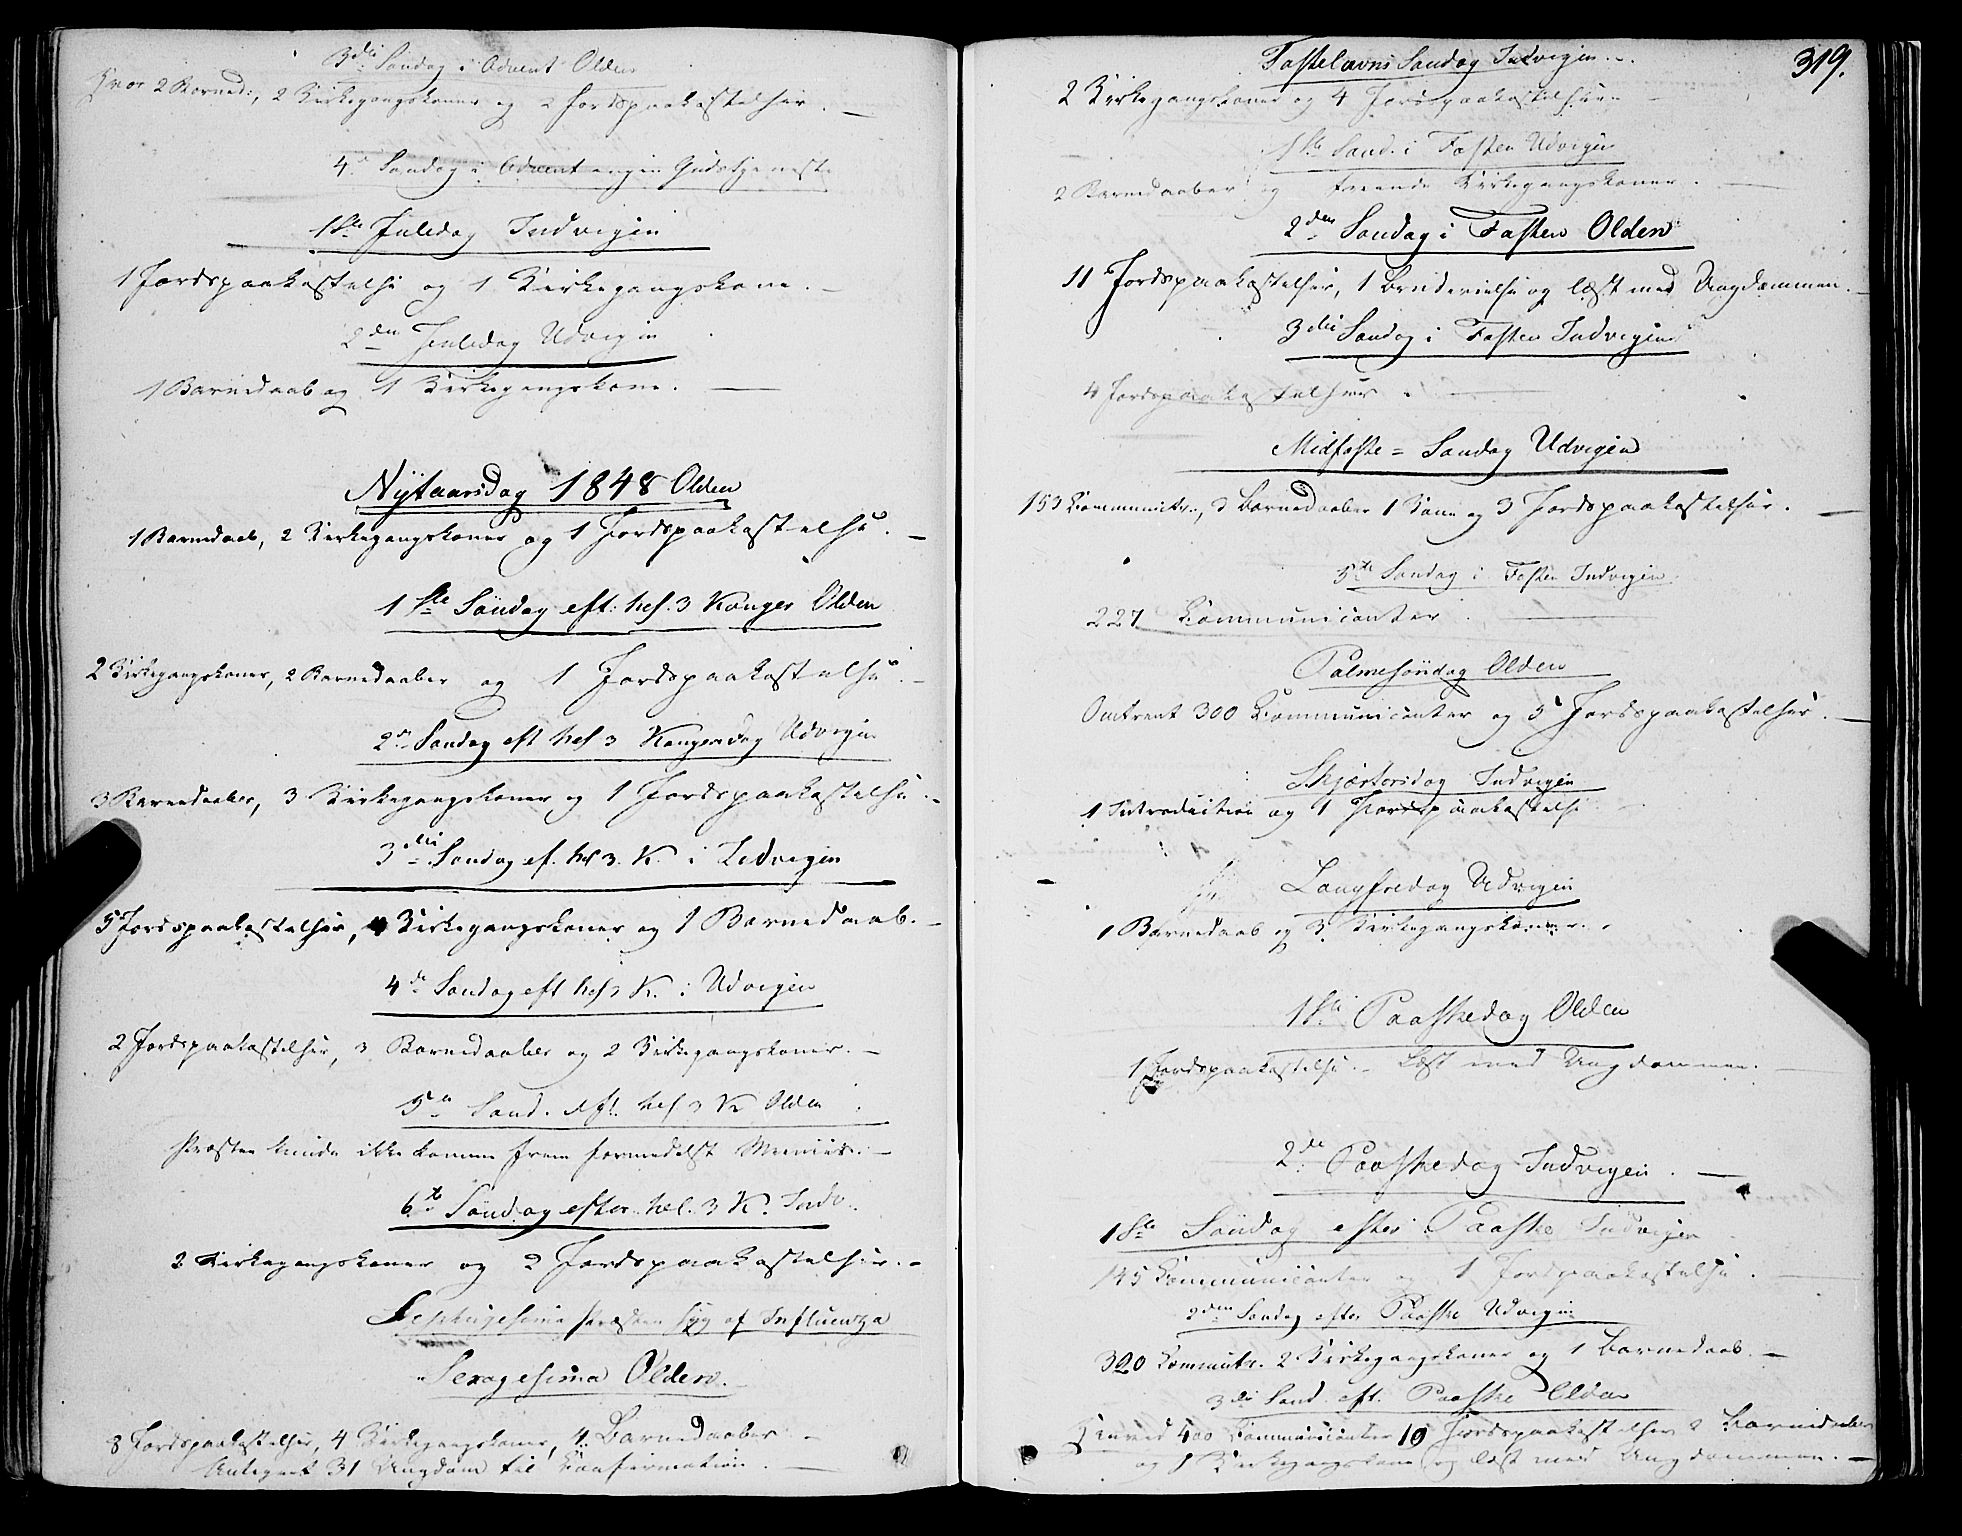 3die Søndag i Advent Olden
Hvor 2 Barned:, 2 Kirkegangskoner og 2 Jordspaakastelser. —
4de Søndag i Advent ingen Gudstjeneste
1ste Juledag Indvigen
1 Jordspaakastelse og 1 Kirkegangskone. —
2den Juledag Udvigin
1 Barnedaab og 1 Kirkegangskone. —
Nÿtaarsdag 1848 Olden
1 Barnedaab, 2 Kirkegangskoner og 1 Jordspaakastelse. —
1ste Söndag eft: hel. 3 Konger Olden
2 Kirkegangskoner, 2 Barnedaaber og 1 Jordspaakastelse. —
2den Søndag eft hel 3 Kongerdag Udvigin
3 Barnedaaber, 3 Kirkegangskoner og 1 Jordspaakastelse. —
3die Søndag ef. hel 3. K. i Indvigin
5 Jordspaakastelser, 4 Kirkegangskoner og 1 Barnedaab. —
4de Søndag eft hel 3 K. i Udvigin
2 Jordspaakastelser, 3 Barnedaaber og 2 Kirkegangskoner. —
5te Sønd. eft. hel 3 K Olden
Præsten kunde ikke komme frem formedelst Meeniis. —
6te Søndag efter hel. 3 K. Indv.
2 Kirkegangskoner og 2 Jordspaakastelser. —
Septuigesima Præsten syg af Influenza
Sexagesima Olden.
8 Jordspaakastelser, 4 Kirkegangskoner, 4 Barnedaaber —
Antegnet 31 Ungdom til Confirmation. —
319.
Fastelavns Søndag Indvigin. —
2 Kirkegangskoner og 4 Jordspaakastelser. —
1ste Sønd. i Fasten Udvigin
2 Barnedaaber og trende Kirkegangskoner. —
2den Søndag i Fasten Olden
11 Jordspaakastelser, 1 Brudevielse og læst med Ungdommen. —
3die Søndag i Fasten Indvigin
4 Jordspaakastelser. —
Midfaste = Søndag Udvigin
153 Communicter., 3 Barnedaaber 1 Kone og 3 Jordspaakastelser. —
5te Søndag i Fasten Indvigin
227 Communicanter. —
Palmesöndag Olden
Omtrent 300 Communicanter og 5 Jordspaakastelser. —
Skjærtorsdag Indvigin
1 Introduction og 1 Jordspaakastelse
Langfredag Udvigin
1 Barnedaab og 3 Kirkegangskoner. —
1ste Paaskedag Olden
1 Jordspaakastelse. — Læst med Ungdommen. —
2de Paaskedag Indvigin. —
1ste Söndag efter Paaske Indvigin
145 Communicanter og 1 Jordspaakastelse. —
2den Søndag efter Paaske Udvigin
320 Communter. 2 Kirkegangskoner og 1 Barnedaab. —
3die Sønd. eft. Paaske Olden
Henved 400 Communicanter 10 Jordspaakastelser 2 Barnedaaber
og 1 Kirkegangskone og læst med Ungdommen. —